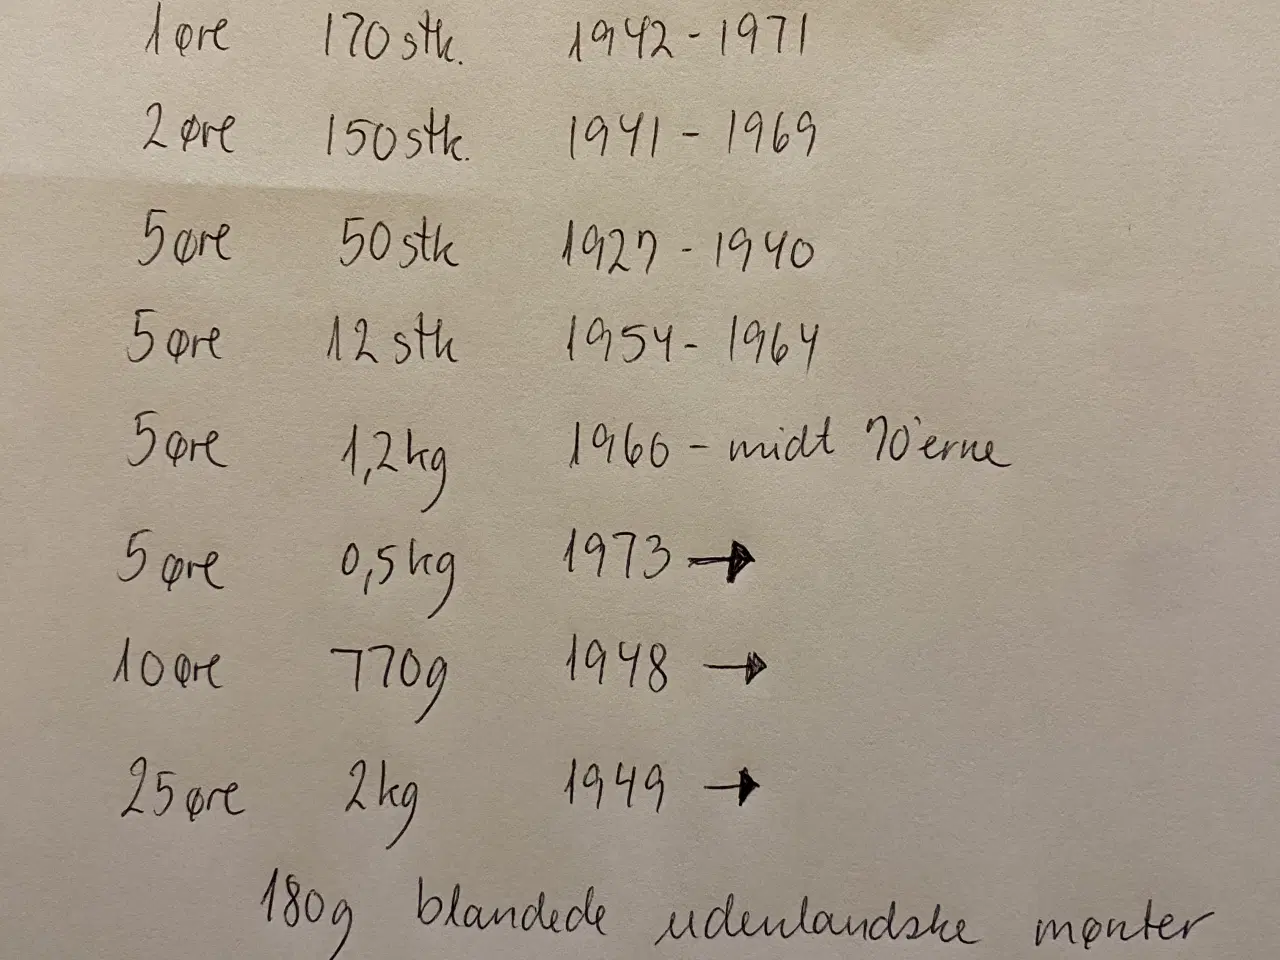 1 øre 170 stk. 1942 - 1971
2 øre 150 stk. 1941 - 1969
5 øre 50 stk 1927 - 1940
5 øre 12 stk 1954 - 1964
5 øre 1,2 kg 1960 - midt 70'erne
5 øre 0,5 kg 1973 →
10 øre 770g 1948 →
25 øre 2 kg 1949 →
180g blandede udenlandske mønter